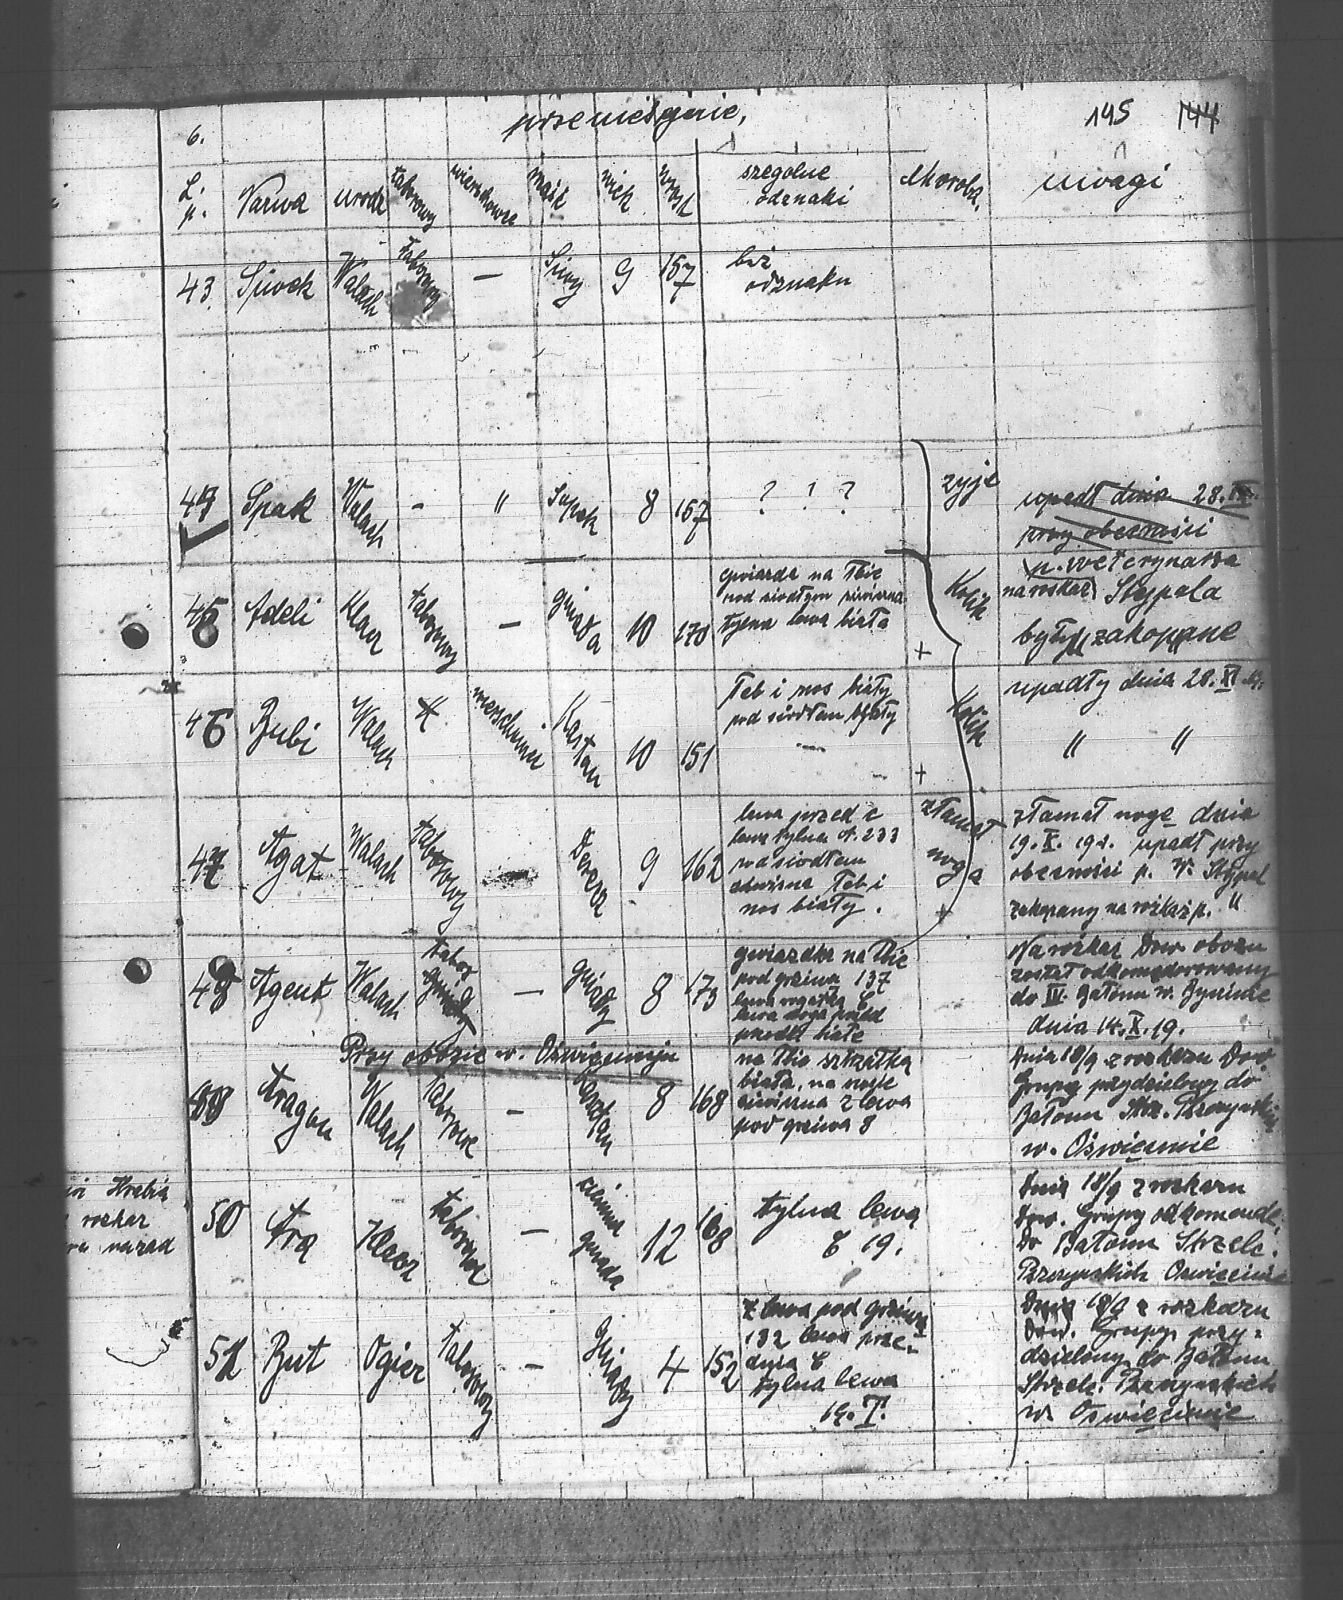 6.
przeniesienie,
145 144
L.
p. Nazwa urodz taborowy wierzchowce maść wiek wzrost szegolne
odznaki choroba, uwagi
43. Siwek Walach taborowy — Siwy 9 157 bez
odznaku
44 Spak Walach - " Szpak 8 157 ? ! ? zyje
upadł dnia 28.
przy obecności
p. weterynarza
45 Adeli Klacz taborowy — gniada 10 170
gwiazda na łbie
pod siodłem siwizna
tylna lewa biała
Kolik
+
na roskaz Stypala
były zakopane
46 Bubi Walach wierzchowy Kasztan 10 151
łeb i nos biały
pod siodłem biały
—
Kolik
+
upadły dnia 28. XI 19.
" "
47 Agat Walach taborowy — Deresz 9 162
lewa przed i
lewa tylna N. 233
pod siodłem
siwizna łeb i
nos biały.
złamał
noge
+
złamał noge dnia
19. X. 19r. upadł przy
obecności p. W. Stypal
zakopany na rozkaz p. "
48 Agent Walach tabor — gniady 8 173
gwiazdka na łbie
pod grziwa 137
lewa przed
białe
Na rozkaz Dow obozu
został odkomederowany
do III. Batonu w.
dnia 14. X. 19.
Przy obozie w. Oświęcimiu
Aragan Walach taborowe — Kasztan 8 168
na łbie strzałka
biała, na nosie
siwizna z lewa
pod grziwa 8
dnia 18/9 z rozkazu Dow.
Grupy przydzielowy do
Batonu Strz.
w. Oświęcimie
50 Ara Klacz taborowa — ciemna
gniada 12 168
tylna lewa
C 19.
dnia 18/9 z rozkazu
Dow. Grupy odkomend.
do Batonu Strzelc.
Pszczynskich Oswiecimie
51 But Ogier taborowy — Gniady 4 152
z lewa pod grziwa
132 lewa prze-
dnia C
tylna lewa
19. T.
Dnia 18/9 z rozkazu
Dow. Grupy przy-
dzielony do Batonu
Strzelc. Pszczynskich
w Oswięcimie
rozkaz
nazad